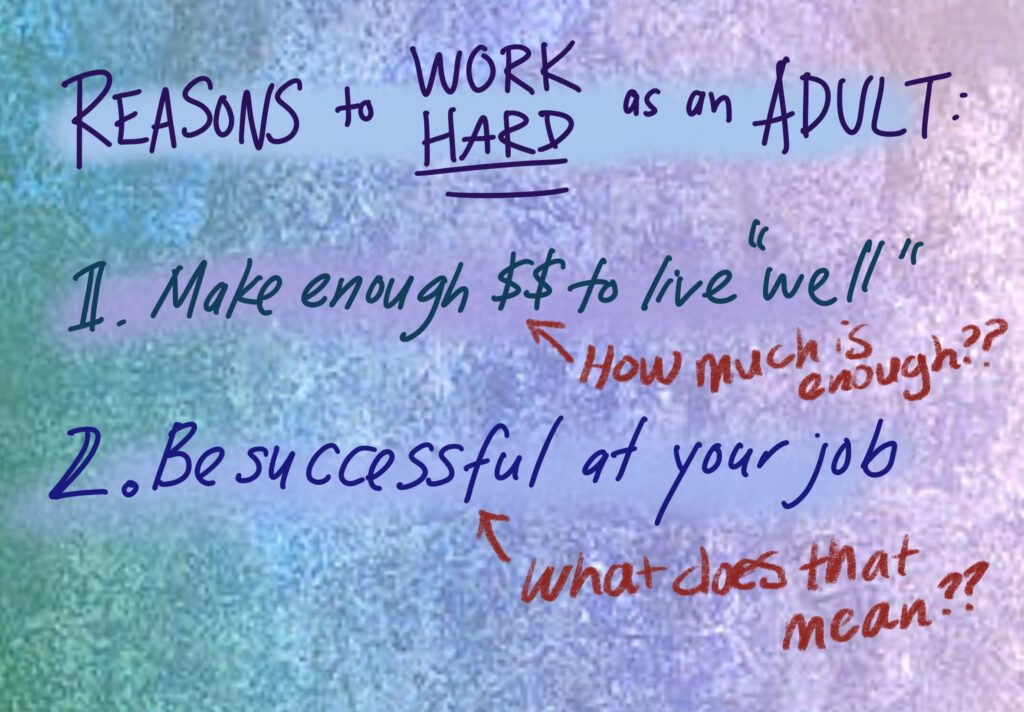 REASONS to WORK HARD as an ADULT:
1. Make enough $$ to live "well"
How much is
enough??
2. Be successful at your job
What does that
mean??